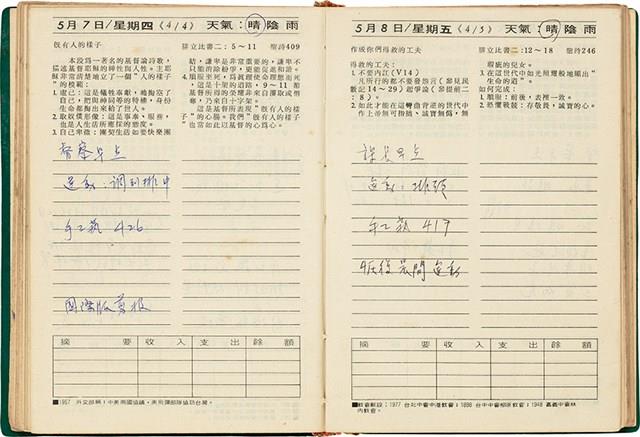 5月7日/星期四《4/4》 天氣:晴陰雨
既有人的樣子 腓立比書二:5~11 聖詩409
本段為一著名的基督論詩歌,
描述基督耶穌的神性與人性。主耶
穌非常清楚地立了一個"人的樣子"
的模範:
1.虛己:這是犧牲奉獻,祂掏空了
自己,把與神同等的特權、身份
生命都掏出來給了世人。
2.取奴僕形像:這是事奉、服務,
也是人生活所應採的態度。
3.自己卑微:團契生活如要快樂團
結,謙卑是非常重要的。謙卑不
只能消除紛爭,更能促進和諧。
4.順服至死:為真理使命理想而死
,這是十架的道路,9~11節
基督所得的榮耀非來自彈球或僭
奪,乃來自十字架。
這是基督所表現"既有人的樣
子"的心腸。我們"既有人的樣子"
也當如此以基督的心為心。
督察早点
運動:調到排中
手工藝 426
國際版剪報
摘要 收入 支出 餘額
■1957 外交部稱:中美兩國協議,美飛彈部隊協防台灣。
5月8日/星期五《4/5》 天氣:晴陰雨
作成你們得救的工夫 腓立比書二:12~18 聖詩246
得救的工夫:
1.不要內訌(V14)
凡所行的都不要發怨言(參見民
數記14~29)起爭論(參提前二
:8)。
2.如此才能在這彎曲背逆的世代中
作上帝無可指摘、誠實無偽,無
瑕疵的兒女。
3.在這世代中如光照耀般地顯出"
生命的道"。
如何完成:
1.順服:前後,表裡一致。
2.恐懼戰兢:存敬畏,誠實的心。
課長早点
運動:排頭
手工藝 419
午后後晨間運動
摘要 收入 支出 餘額
■教會創設:1977 台北中會中港教會;1898 台中中會柳原教會;1948 嘉義中會林
內教會。